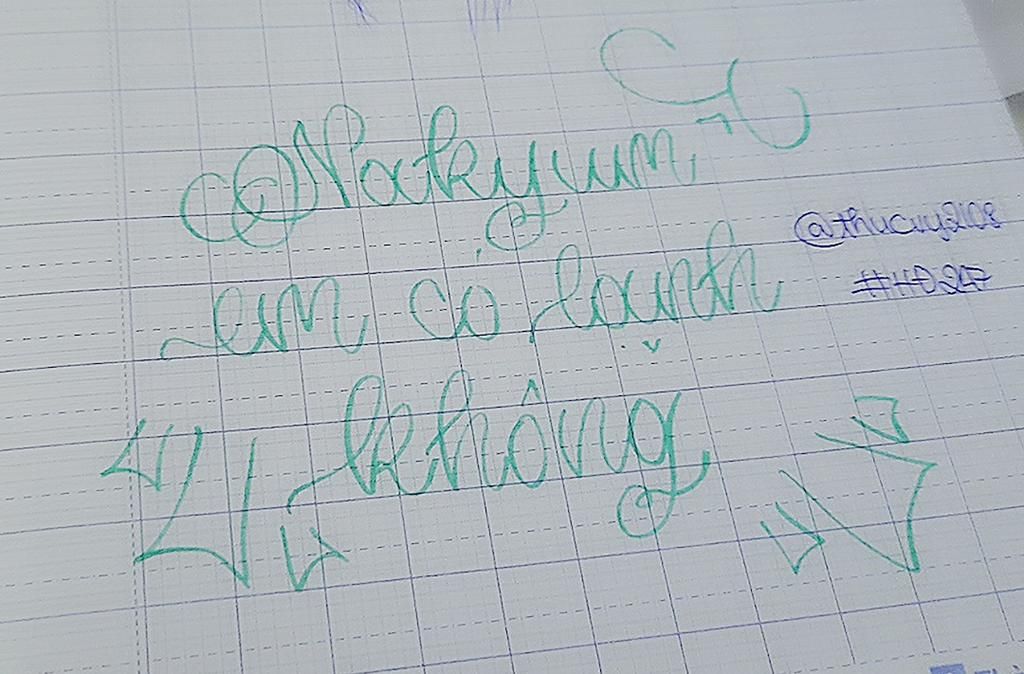 @Natkyum
em có lạnh
không
@thucuy2108
#HD247